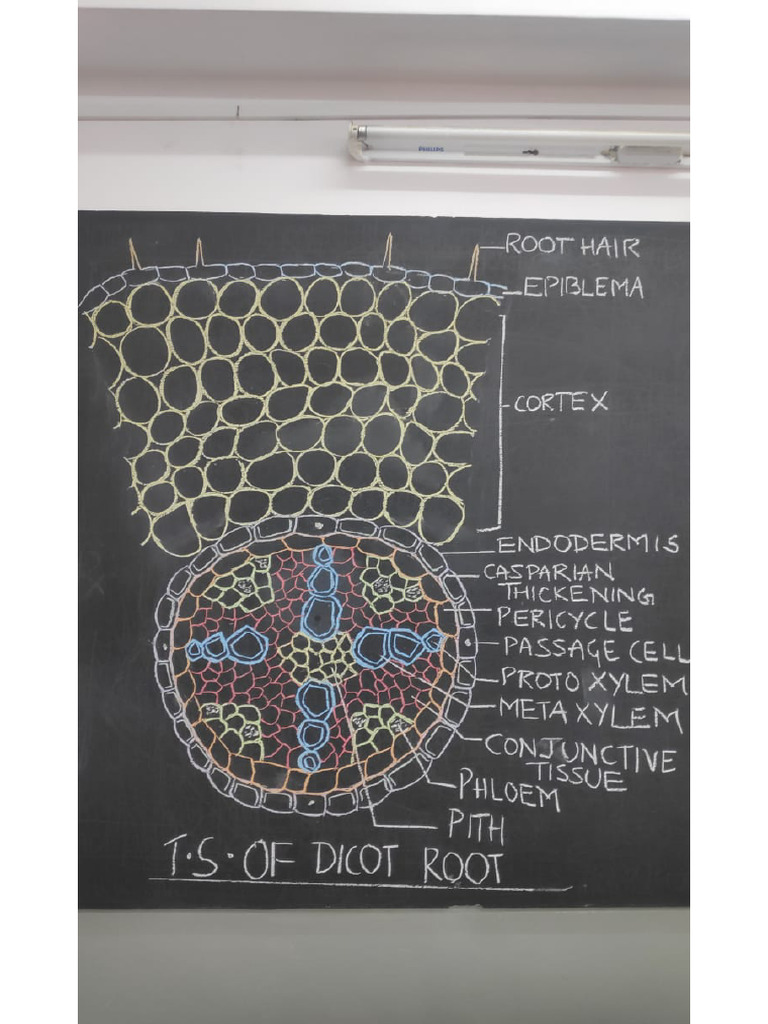 PHILIPS
ROOT HAIR
EPIBLEMA
CORTEX
ENDODERMIS
CASPARIAN
THICKENING
PERICYCLE
PASSAGE CELL
PROTO XYLEM
META XYLEM
CONJUNCTIVE
TISSUE
PHLOEM
PITH
T.S. OF DICOT ROOT